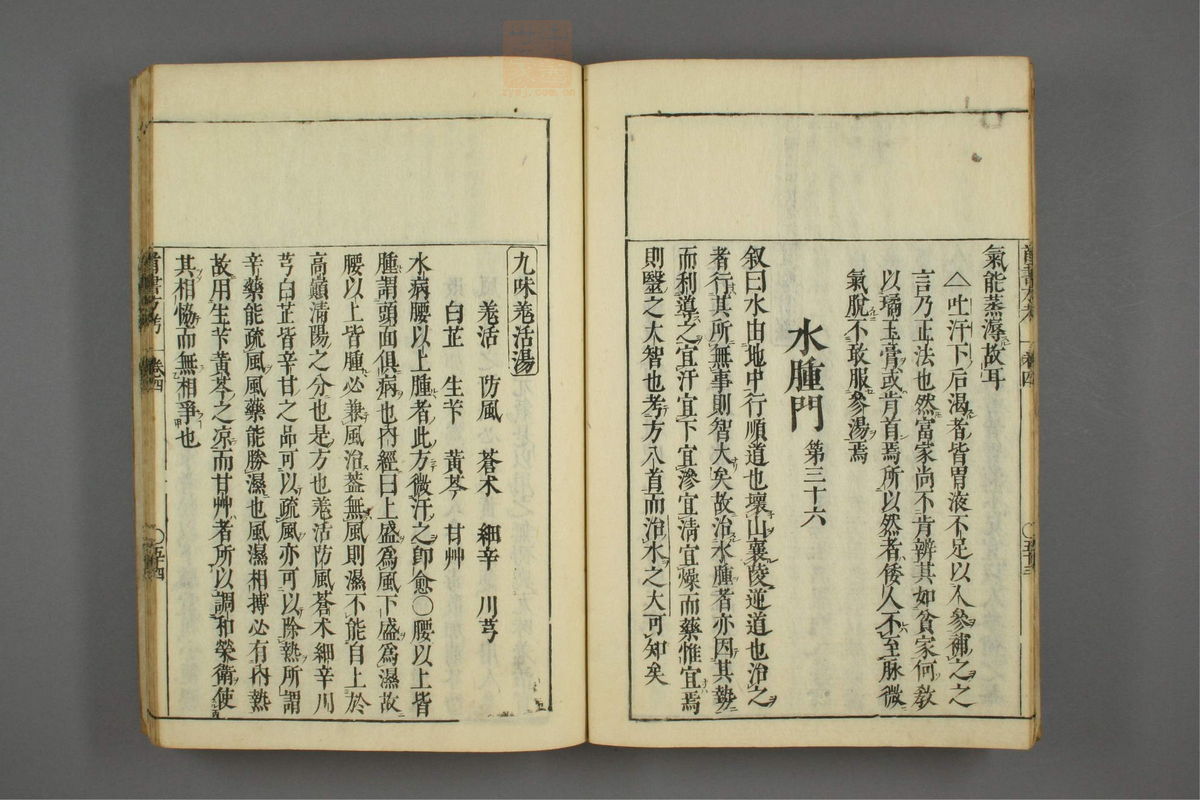 氣能蒸溽故耳
△吐汗下后渴者皆胃液不足以人參補之之
言乃正法也然富家尚不肯辨其如貧家何敎
以璚玉膏或肯首焉所以然者倭人不至脉微
氣脫不敢服參湯焉
水腫門 第三十六
叙曰水由地中行順道也壞山襄陵逆道也治之
者行其所無事則智大矣故治水腫者亦因其勢
而利導之宜汗宜下宜滲宜淸宜燥而藥惟宜焉
則醫之大智也考方八首而治水之大可知矣
九味羗活湯
羗活 防風 蒼术 細辛 川芎
白芷 生芐 黃芩 甘艸
水病腰以上腫者此方微汗之卽愈〇腰以上皆
腫謂頭面俱病也內經曰上盛爲風下盛爲濕故
腰以上皆腫必兼風治蓋無風則濕不能自上於
高巔淸陽之分也是方也羗活防風蒼术細辛川
芎白芷皆辛甘之品可以疏風亦可以除熱所謂
辛藥能疏風風藥能勝濕也風濕相搏必有內熱
故用生芐黃芩之凉而甘艸者所以調和榮衛使
其相恊而無相爭也
卷四
〇五十四
zyyj.com.cn